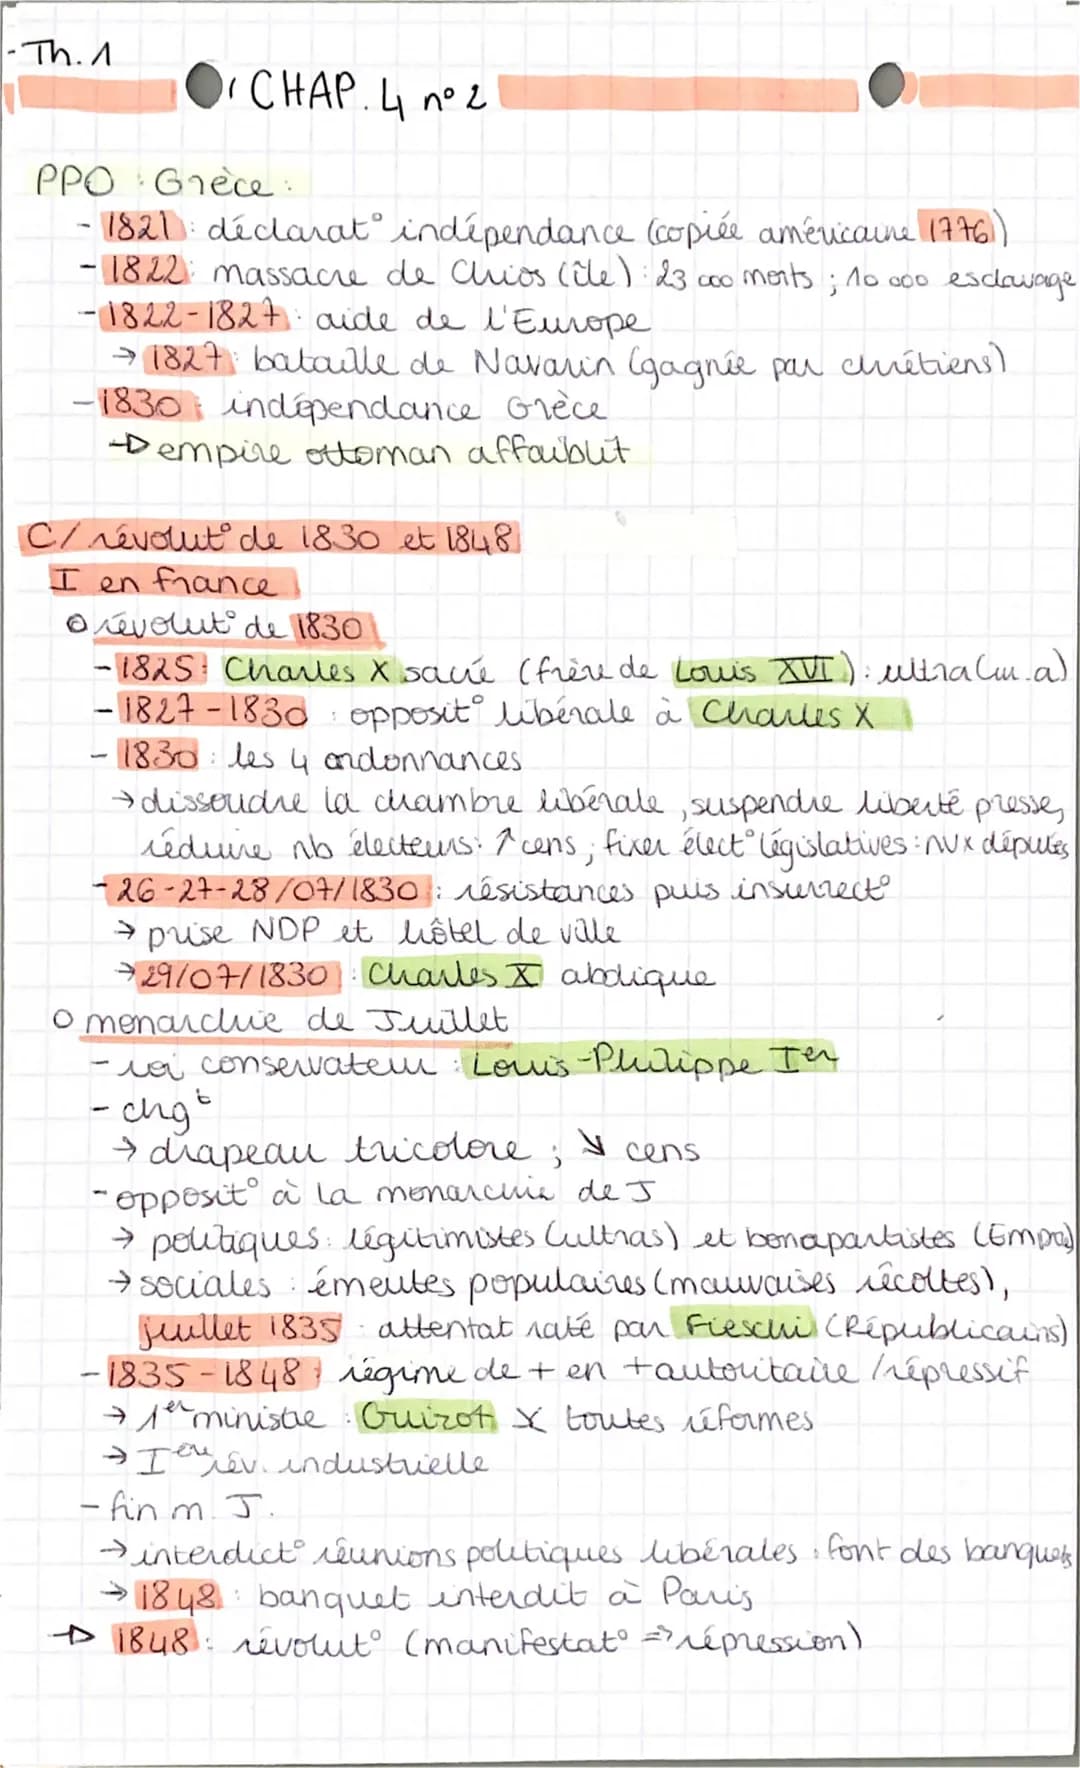 - Th. 1
CHAP. 4 n° 2
PPO : Grèce :
- 1821 : déclarat° indépendance (copiée américaine 1776)
- 1822 : massacre de Chios (île) : 23 000 morts ; 10 000 esclavage
- 1822-1827 : aide de l'Europe
→ 1827 : bataille de Navarin (gagnée par chrétiens)
- 1830 : indépendance Grèce
→ empire ottoman affaiblit
C/ révolut° de 1830 et 1848
I en france
o révolut° de 1830
- 1825 : Charles X sacré (frère de Louis XVI) : ultra (m.a)
- 1827-1830 : opposit° libérale à Charles X
- 1830 : les 4 ordonnances
→ dissoudre la chambre libérale, suspendre liberté presse,
réduire nb électeurs : ↑ cens ; fixer élect° législatives : nvx députés
- 26-27-28/07/1830 : résistances puis insurrect°
→ prise NDP et hôtel de ville
→ 29/07/1830 : Charles X abdique
o monarchie de Juillet
- roi conservateur : Louis-Philippe Ier
- chgt
→ drapeau tricolore ; ↘ cens
- opposit° à la monarchie de J
→ politiques : légitimistes (ultras) et bonapartistes
→ sociales : émeutes populaires (mauvaises récoltes),
juillet 1835 : attentat raté par Fieschi (Républicains)
- 1835-1848 : régime de + en + autoritaire / répressif
→ 1er ministre : Guizot toutes réformes
→ Ière rév. industrielle
- fin m. J.
→ interdict° réunions politiques libérales : font des banquets
→ 1848 : banquet interdit à Paris
→ 1848 : révolut° (manifestat° => répression)